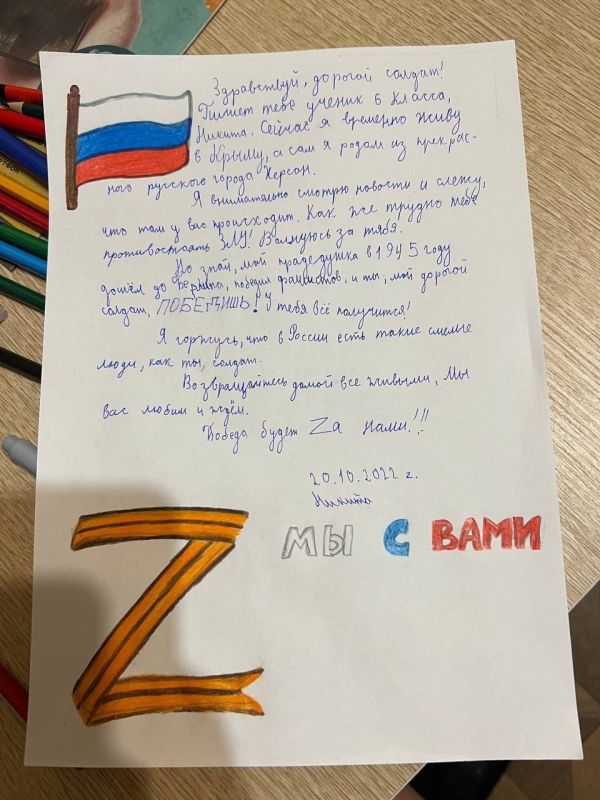 Здравствуй, дорогой солдат!
Пишет тебе ученик 6 класса,
Никита. Сейчас я временно живу
в Крыму, а сам я родом из прекрас-
ного русского города Херсон.
Я внимательно смотрю новости и слежу,
что там у вас происходит. Как же трудно тебе
противостоять ЗЛУ! Волнуюсь за тебя.
Но знай, мой прадедушка в 1945 году
дошёл до Берлина, победил фашистов, и ты, мой дорогой
солдат, ПОБЕДИШЬ! У тебя всё получится!
Я горжусь, что в России есть такие смелые
люди, как ты, солдат.
Возвращайтесь домой все живыми, Мы
вас любим и ждём.
Победа будет Zа нами!!!
20.10.2022 г.
Никита
МЫ С ВАМИ
Z